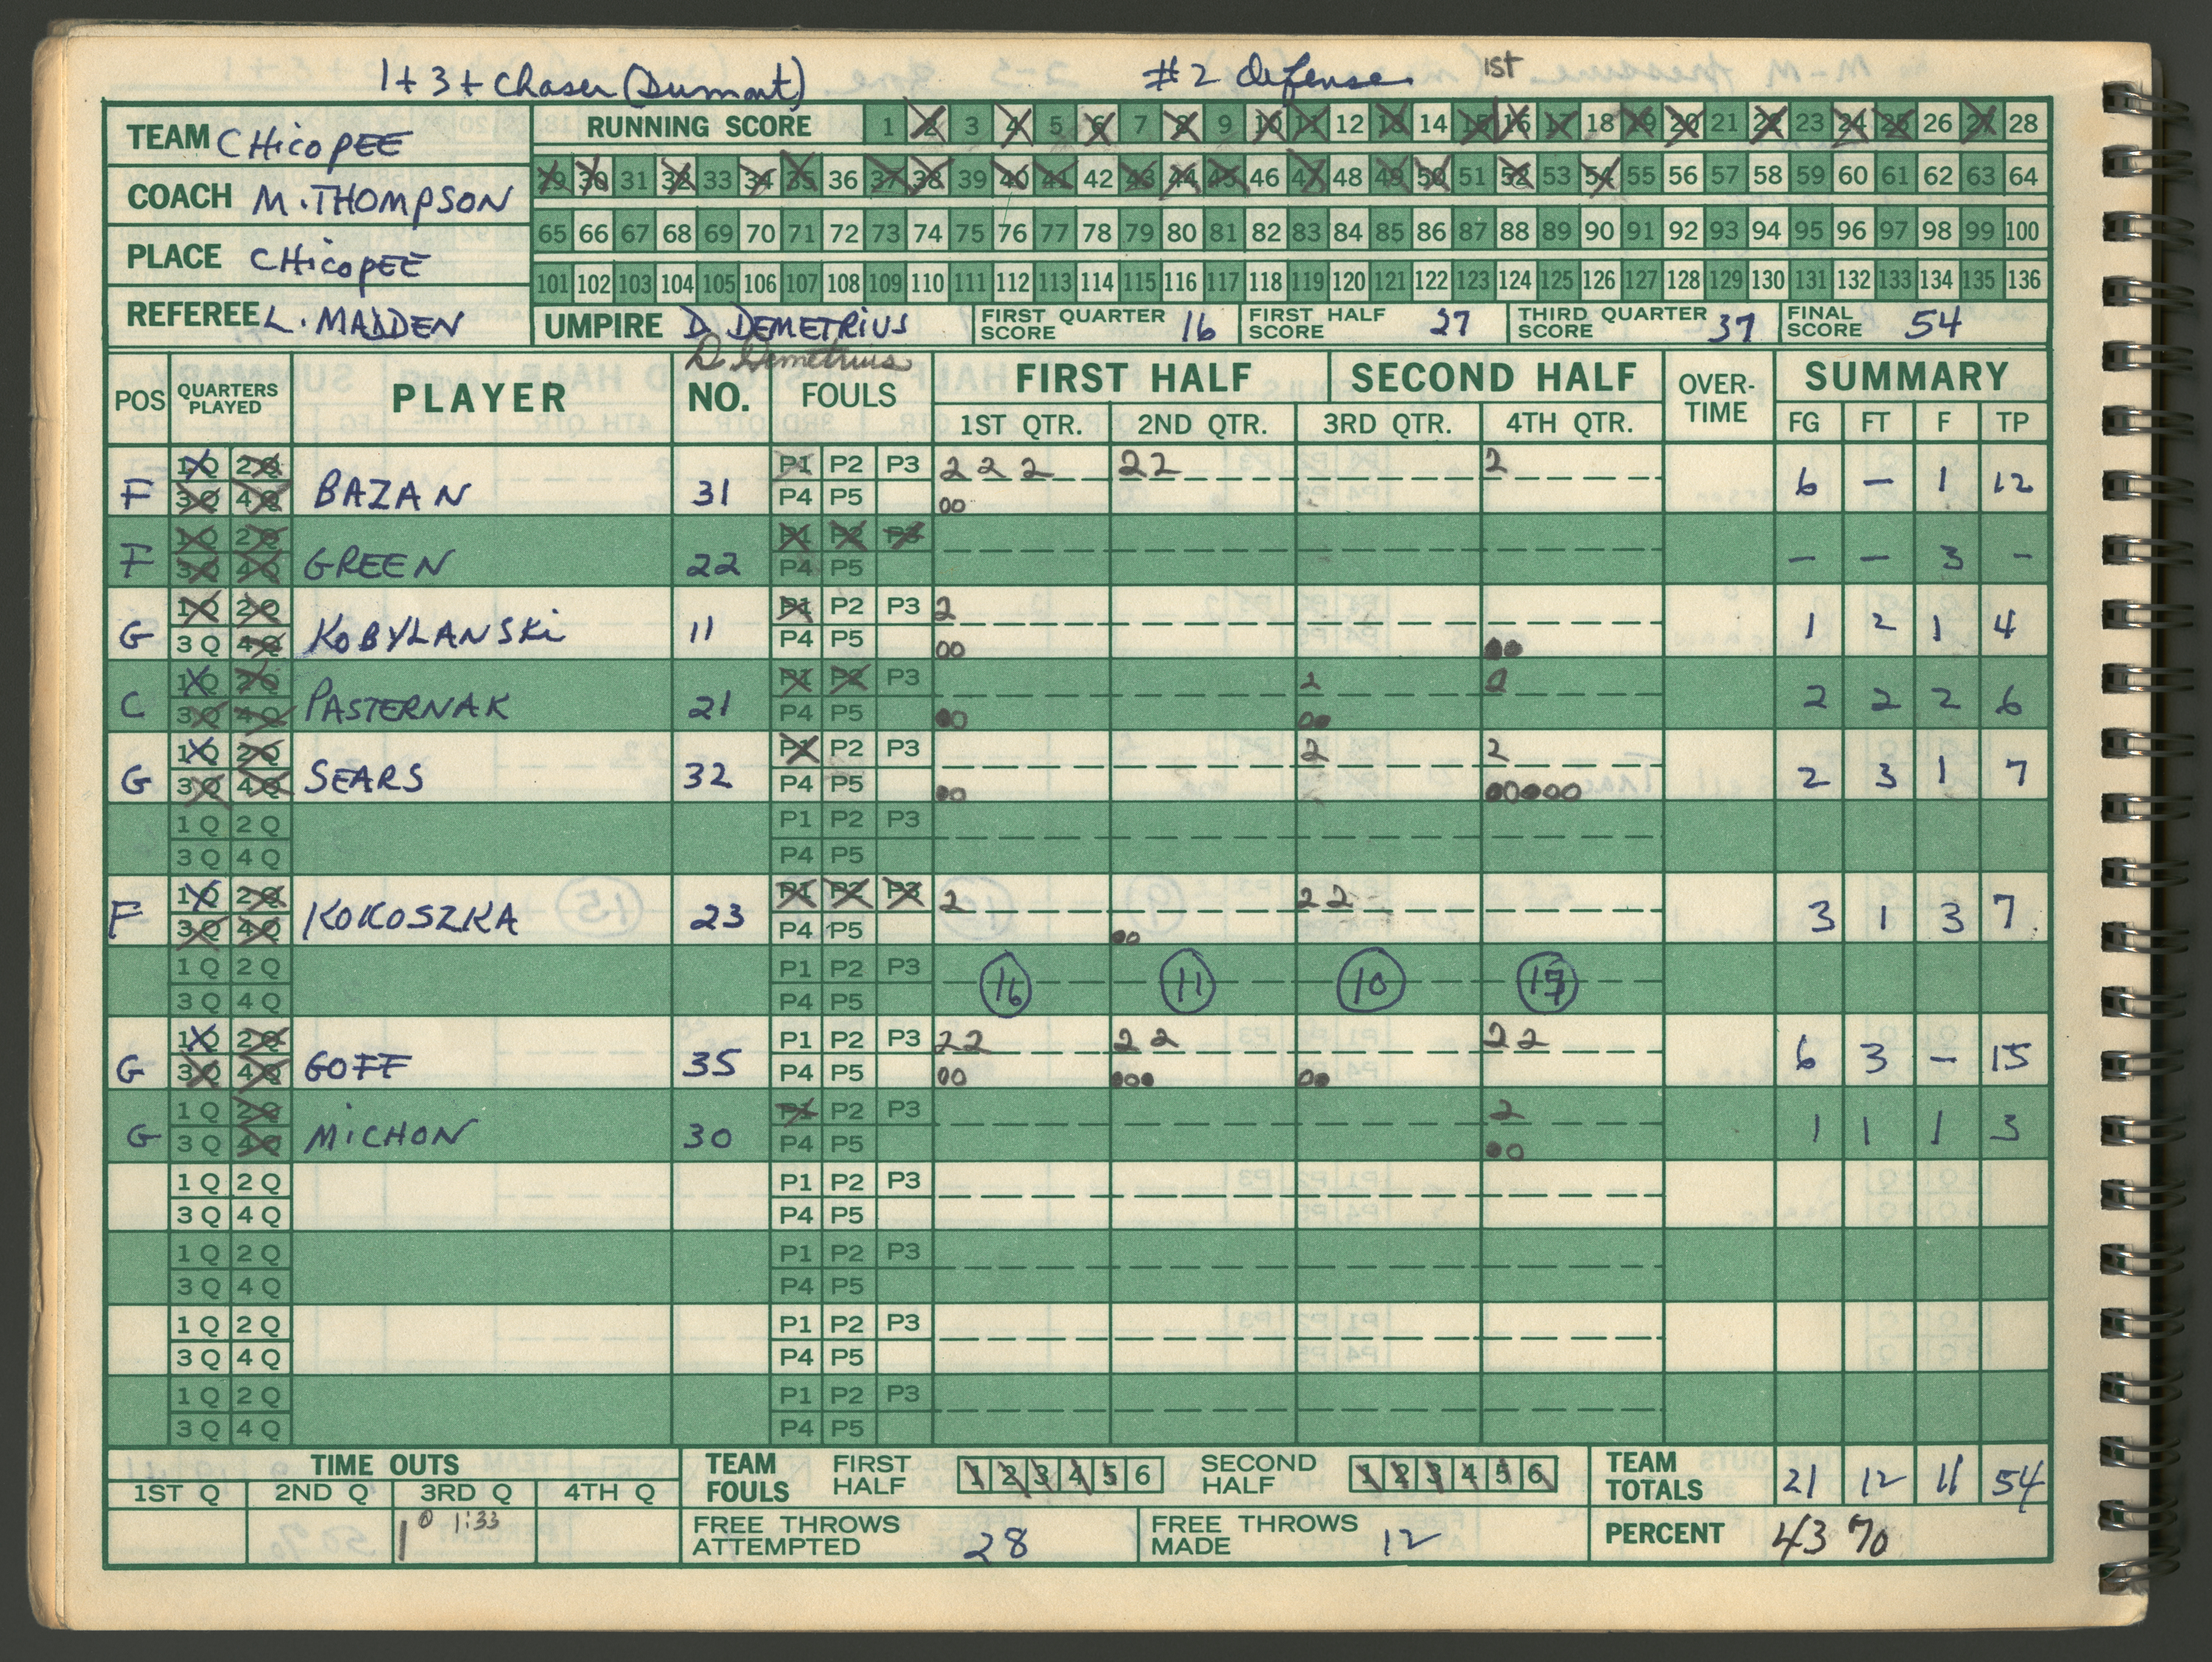 1+3+ Chaser (Dumont) #2 Defense 1st
TEAM CHicoPEE
COACH M. THOMPSON
PLACE CHicoPEE
REFEREE L. MADDEN
RUNNING SCORE 1 2 3 4 5 6 7 8 9 10 11 12 13 14 15 16 17 18 19 20 21 22 23 24 25 26 27 28
29 30 31 32 33 34 35 36 37 38 39 40 41 42 43 44 45 46 47 48 49 50 51 52 53 54 55 56 57 58 59 60 61 62 63 64
65 66 67 68 69 70 71 72 73 74 75 76 77 78 79 80 81 82 83 84 85 86 87 88 89 90 91 92 93 94 95 96 97 98 99 100
101 102 103 104 105 106 107 108 109 110 111 112 113 114 115 116 117 118 119 120 121 122 123 124 125 126 127 128 129 130 131 132 133 134 135 136
UMPIRE D. DEMETRiUS FIRST QUARTER SCORE 16 FIRST HALF SCORE 27 THIRD QUARTER SCORE 37 FINAL SCORE 54
D. Demetrius
POS QUARTERS PLAYED PLAYER NO. FOULS FIRST HALF SECOND HALF OVER-TIME SUMMARY
1ST QTR. 2ND QTR. 3RD QTR. 4TH QTR. FG FT F TP
1Q 2Q P1 P2 P3 2 2 2 2 2 2
F 3Q 4Q BAZAN 31 P4 P5 00 6 — 1 12
1Q 2Q P1 P2 P3
F 3Q 4Q GREEN 22 P4 P5 — — 3 -
1Q 2Q P1 P2 P3 2
G 3Q 4Q KOBYLANSKi 11 P4 P5 00 ●● 1 2 1 4
1Q 2Q P1 P2 P3 2 2
C 3Q 4Q PASTERNAK 21 P4 P5 ●0 00 2 2 2 6
1Q 2Q P1 P2 P3 2 2
G 3Q 4Q SEARS 32 P4 P5 ●0 00000 2 3 1 7
1Q 2Q P1 P2 P3
3Q 4Q P4 P5
1Q 2Q P1 P2 P3 2 2 2
F 3Q 4Q KOKOSZKA 23 P4 P5 ●0 3 1 3 7
1Q 2Q P1 P2 P3 16 11 10 17
3Q 4Q P4 P5
1Q 2Q P1 P2 P3 2 2 2 2 2 2
G 3Q 4Q GOFF 35 P4 P5 00 ●●0 0● 6 3 — 15
1Q 2Q P1 P2 P3 2
G 3Q 4Q MiCHON 30 P4 P5 ●0 1 1 1 3
1Q 2Q P1 P2 P3
3Q 4Q P4 P5
1Q 2Q P1 P2 P3
3Q 4Q P4 P5
1Q 2Q P1 P2 P3
3Q 4Q P4 P5
1Q 2Q P1 P2 P3
3Q 4Q P4 P5
TIME OUTS TEAM FOULS FIRST HALF 1 2 3 4 5 6 SECOND HALF 1 2 3 4 5 6 TEAM TOTALS 21 12 11 54
1ST Q 2ND Q 3RD Q 4TH Q
1 @ 1:33 FREE THROWS ATTEMPTED 28 FREE THROWS MADE 12 PERCENT 43%